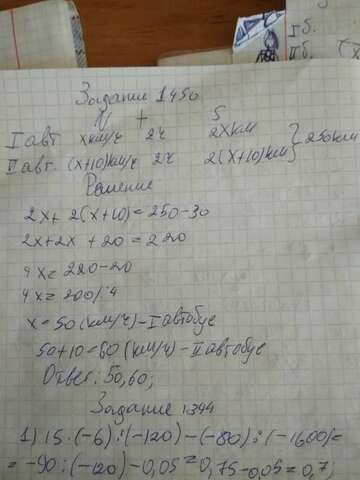 I б.
II б.
Задание 1450
V t S
I авт x км/ч 2ч 2x км } 250 км
II авт. (x+10) км/ч 2ч 2(x+10) км
Решение
2x + 2(x+10) = 250-30
2x+2x +20 = 220
4x = 220-20
4x = 200/:4
x = 50 (км/ч) - I автобус
50+10=60 (км/ч) - II автобус
Ответ: 50,60;
Задание 1344
1) 15·(-6):(-120)-(-80):(-1600)=
= -90:(-120)-0,05=0,75-0,05=0,7;